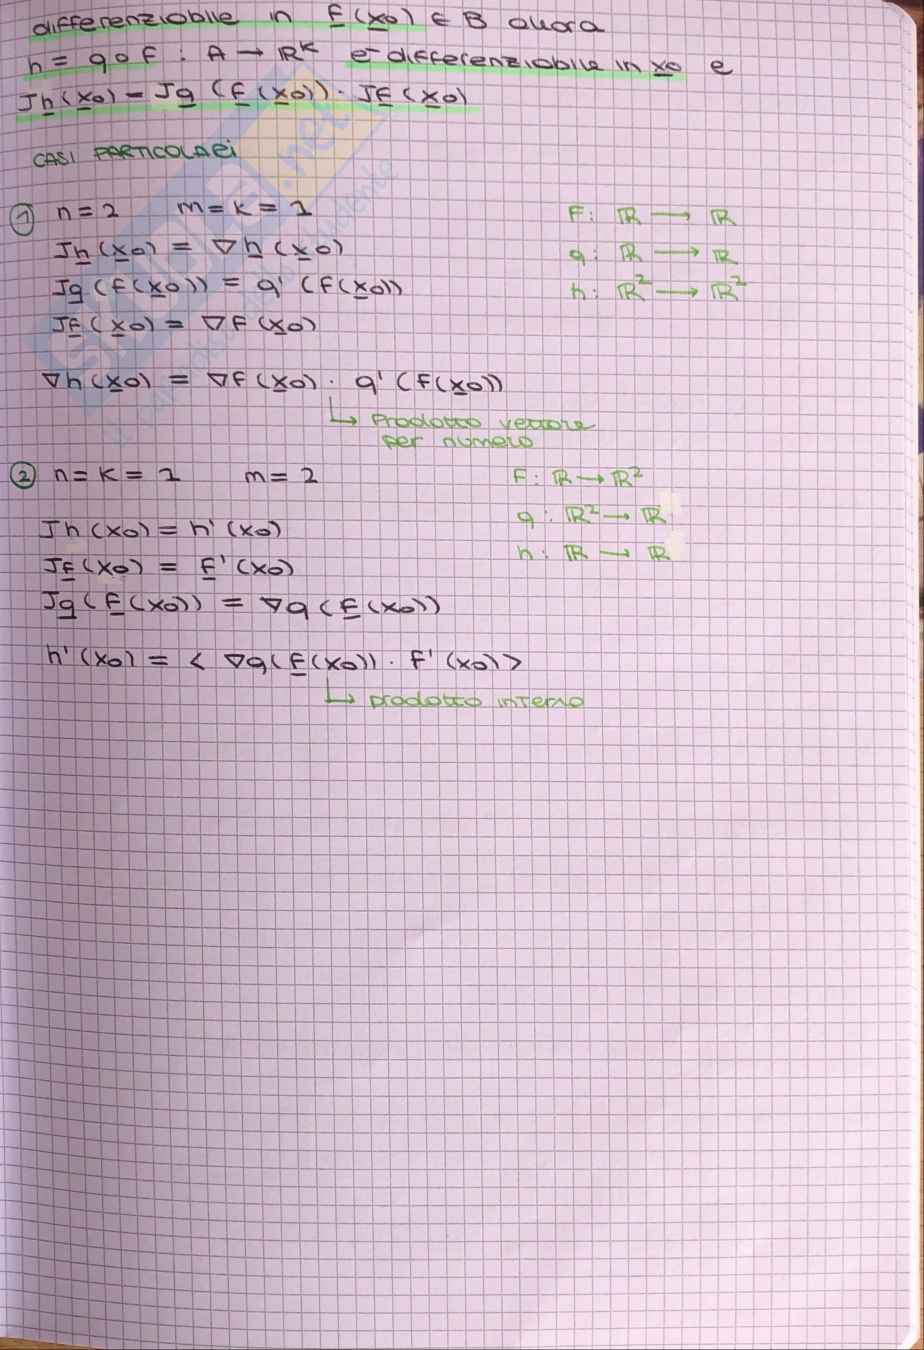 differenziabile in f(x0) ∈ B allora
h = g∘f : A → ℝᵏ è differenziabile in x0 e
Jh(x0) = Jg (f(x0)) · Jf(x0)
CASI PARTICOLARI
① n = 2 m = k = 1
f: ℝ → ℝ
Jh(x0) = ∇h(x0)
g: ℝ → ℝ
Jg(f(x0)) = g'(f(x0))
h: ℝ² → ℝ²
Jf(x0) = ∇f(x0)
∇h(x0) = ∇f(x0) · g'(f(x0))
↳ prodotto vettore
per numero
② n = k = 1 m = 2
f: ℝ → ℝ²
g: ℝ² → ℝ
Jh(x0) = h'(x0)
h: ℝ → ℝ
Jf(x0) = f'(x0)
Jg(f(x0)) = ∇g(f(x0))
h'(x0) = < ∇g(f(x0)) · f'(x0)>
↳ prodotto interno